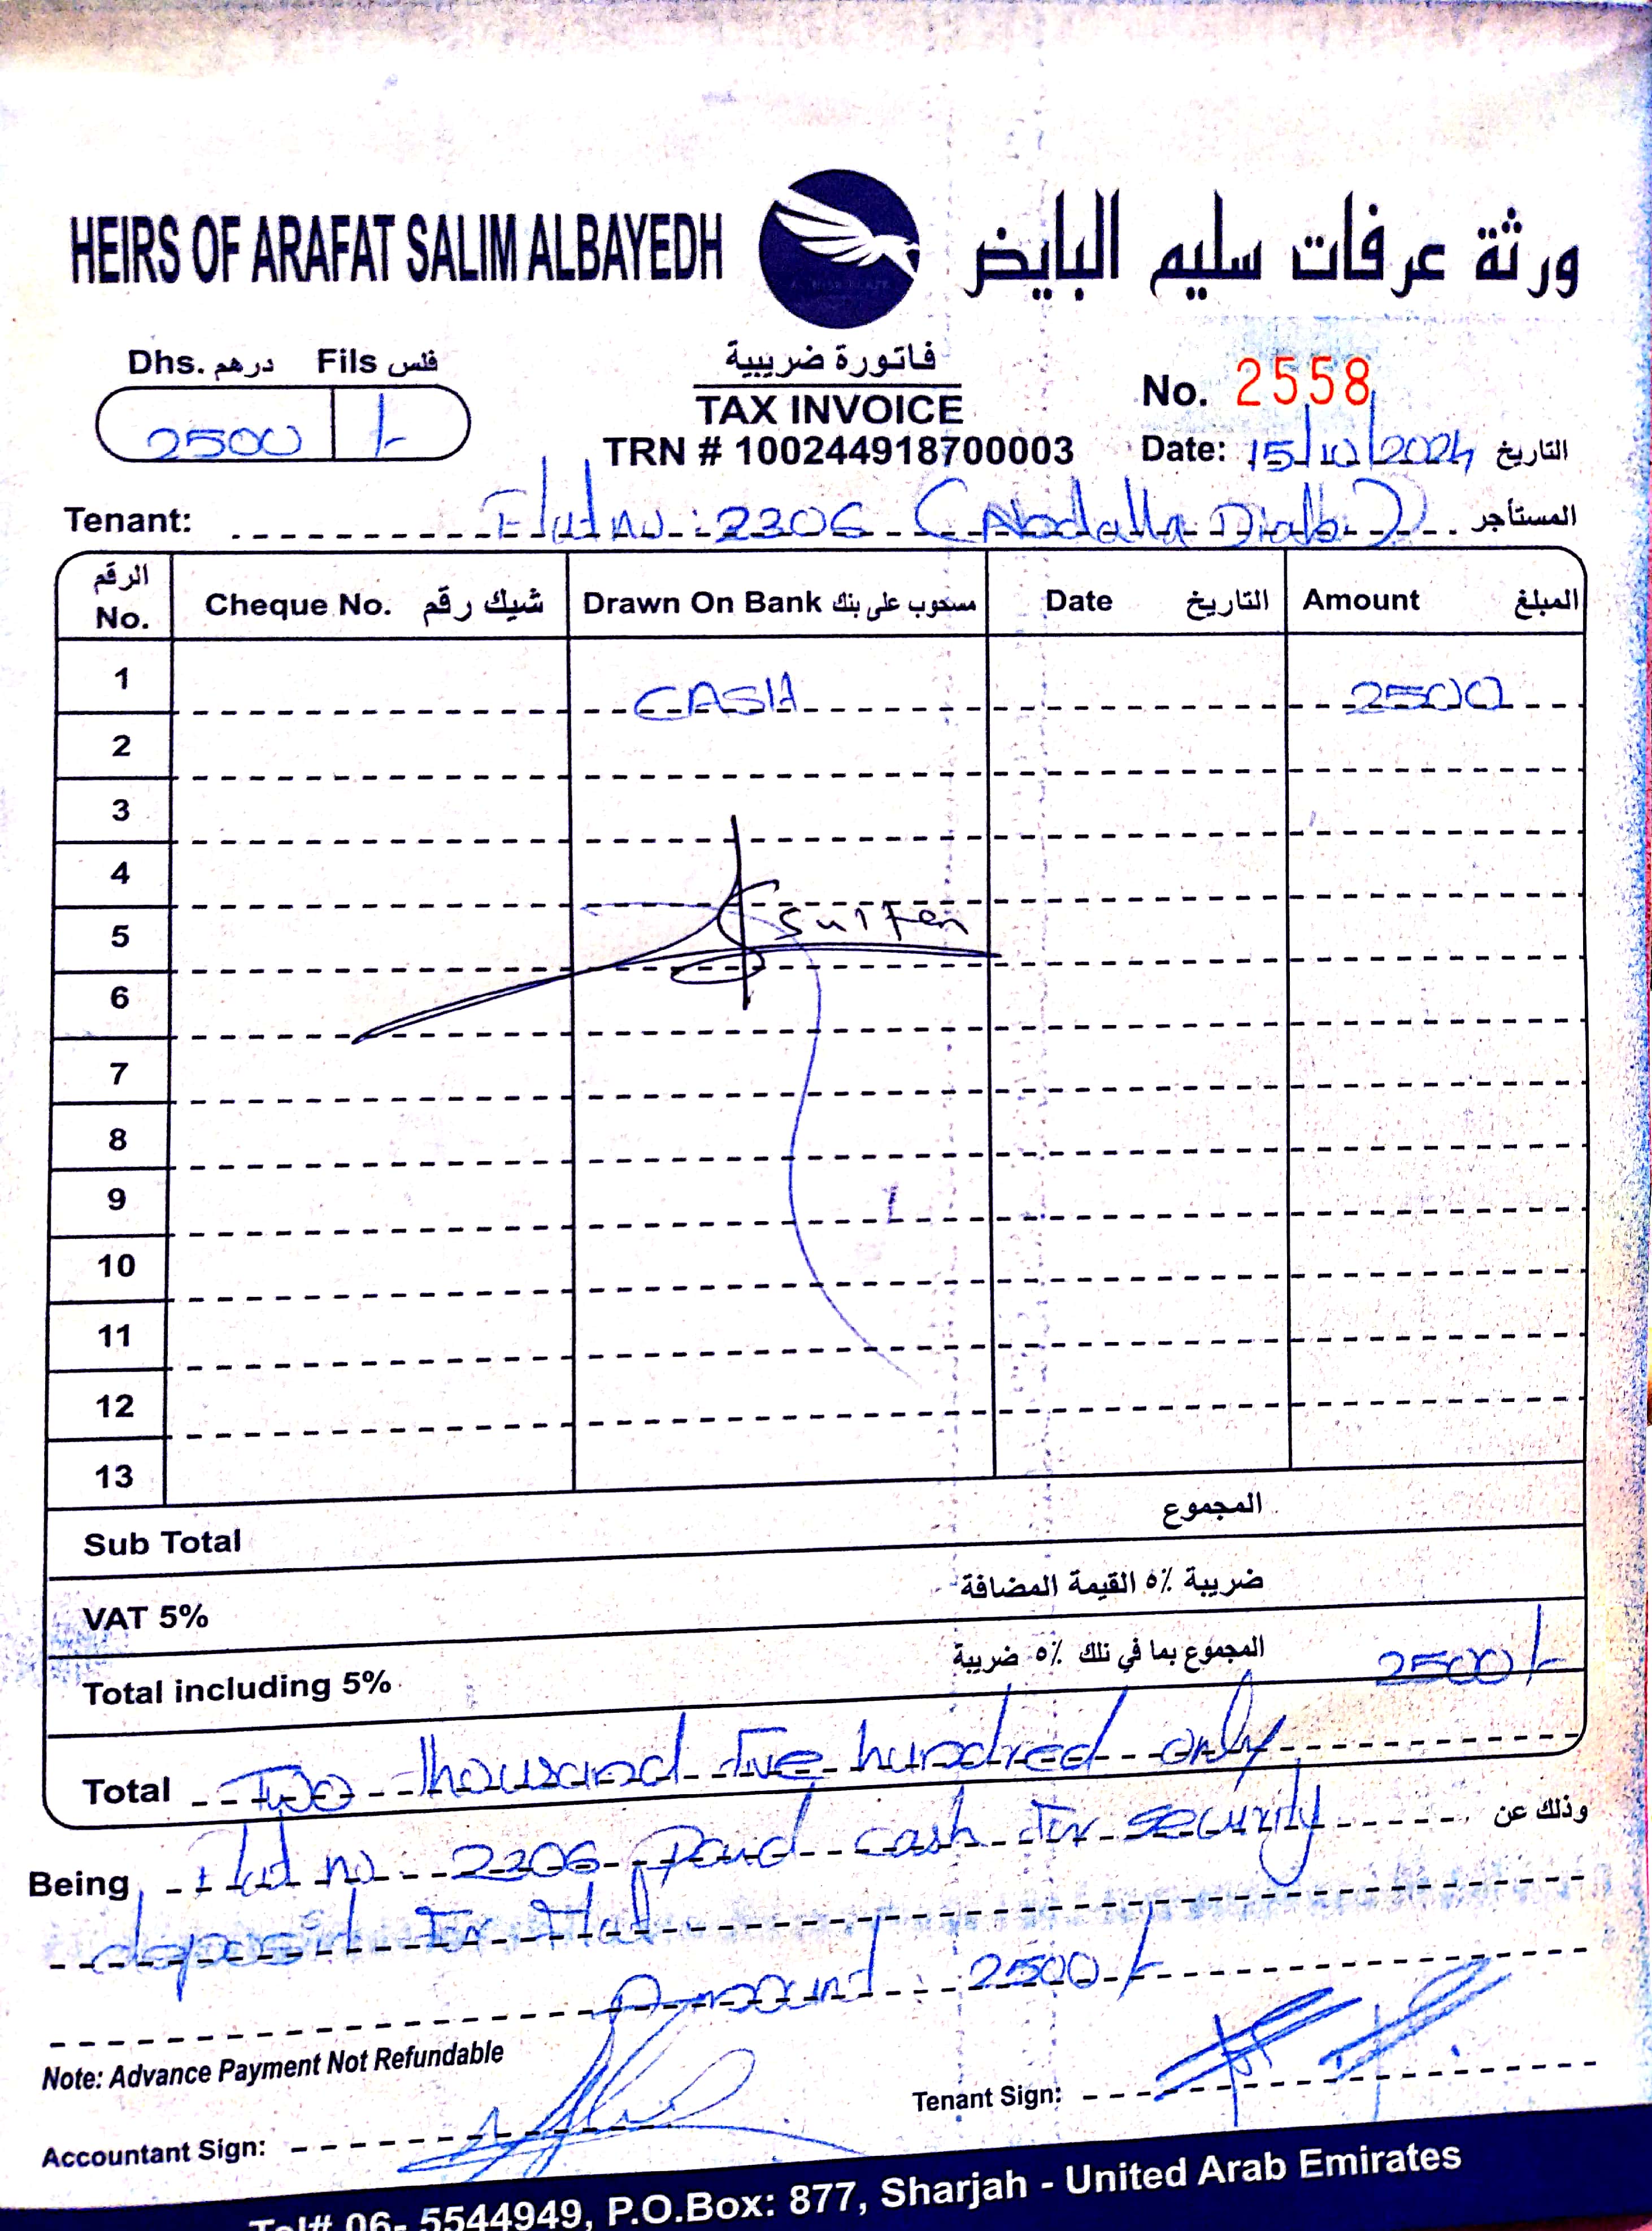 HEIRS OF ARAFAT SALIM ALBAYEDH
ورثة عرفات سليم البايض
Dhs. درهم Fils فلس
2500 /-
فاتورة ضريبية
TAX INVOICE
TRN # 100244918700003
No. 2558
Date: 15/10/2024 التاريخ
Tenant: Flat no: 2306 (Abdalla Diab) المستأجر
الرقم No. Cheque No. شيك رقم Drawn On Bank مسحوب على بنك Date التاريخ Amount المبلغ
1 CASH 2500
2
3
4
5 Sultan
6
7
8
9
10
11
12
13
Sub Total المجموع
VAT 5% ضريبة ٥٪ القيمة المضافة
Total including 5% المجموع بما في تلك ٥٪ ضريبة 2500/-
Total Two thousand five hundred only
Being Flat no 2306 Paid cash for security وذلك عن
deposit for flat
Amount: 2500/-
Note: Advance Payment Not Refundable
Tenant Sign:
Accountant Sign:
Tel# 06- 5544949, P.O.Box: 877, Sharjah - United Arab Emirates